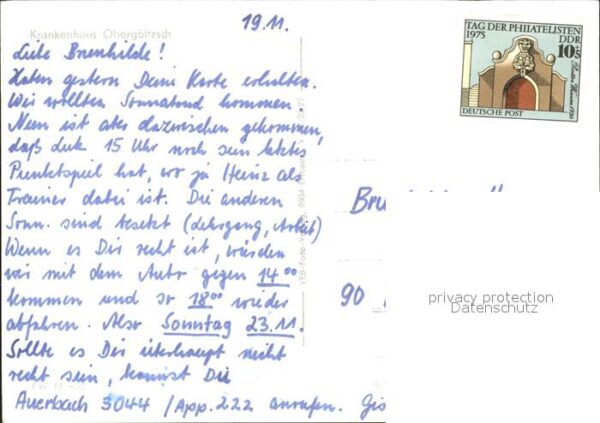 19.11.
Krankenhaus Obergöltzsch
Liebe Brunhilde!
Haben gestern Deine Karte erhalten.
Wir wollten Sonnabend kommen.
Nun ist aber dazwischen gekommen,
daß Luk. 15 Uhr noch sein letztes
Punktspiel hat, wo ja Heinz als
Trainer dabei ist. Die anderen
Sonn. sind besetzt (Lehrgang, Arbeit)
Wenn es Dir recht ist, würden
wir mit dem Auto gegen 14⁰⁰
kommen und so 18⁰⁰ wieder
abfahren. Also Sonntag 23.11.
Sollte es Dir überhaupt nicht
recht sein, kannst Du
Auerbach 3044 / App. 222 anrufen.
TAG DER PHILATELISTEN
1975 DDR
10
DEUTSCHE POST
90
privacy protection
Datenschutz